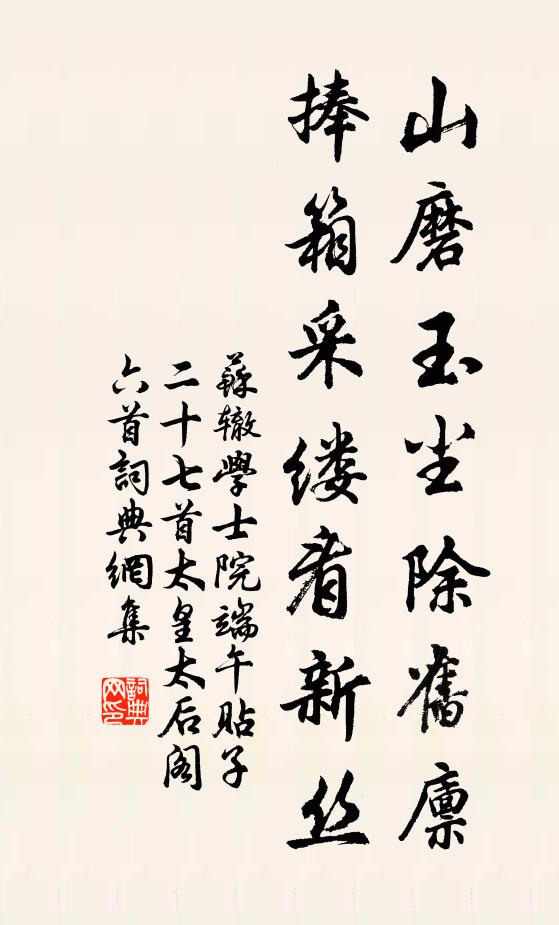 山磨玉尘除舊廪
捧箱采缕看新丝
蘇辙學士院端午贴子
二十七首太皇太后阁
六首詞典網集
詞典
网印